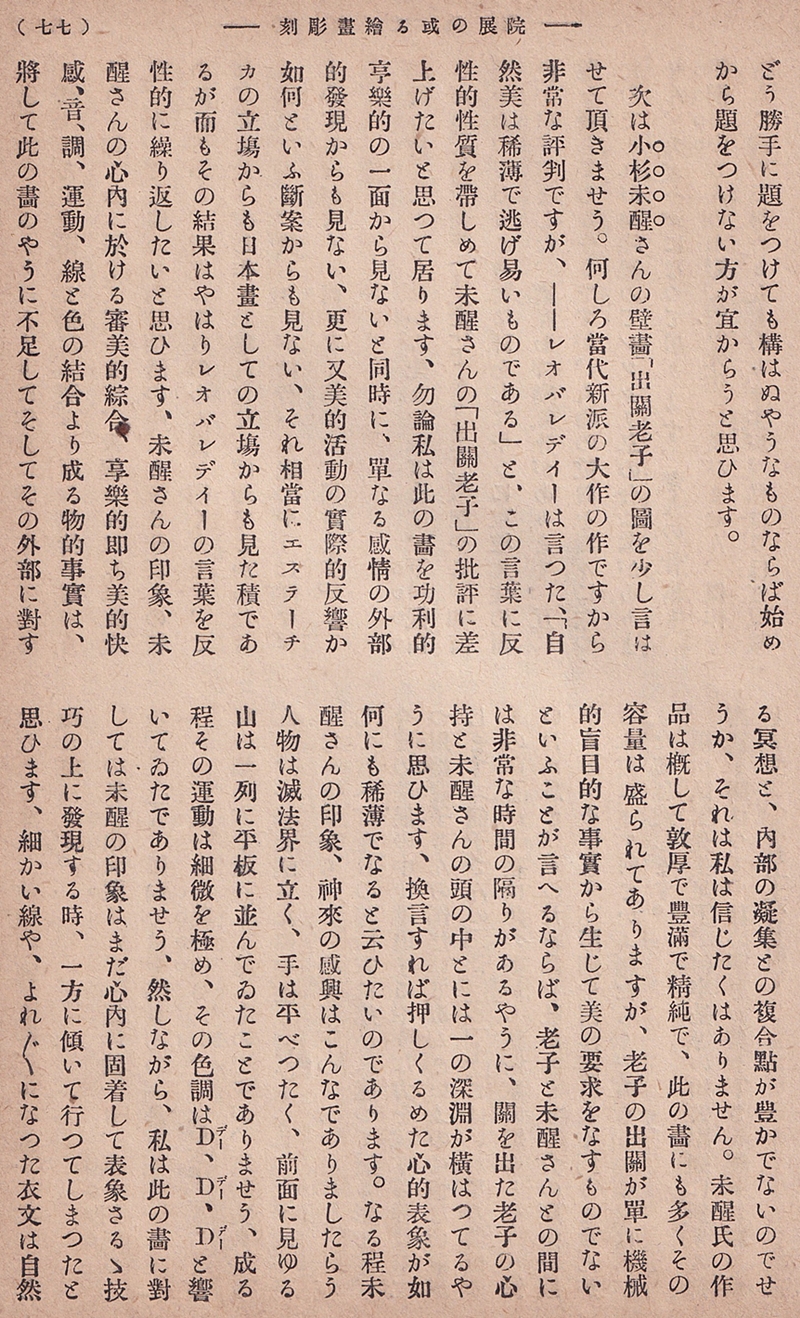 （七七）　── 院展の或る繪畫彫刻 ──
どう勝手に題をつけても構はぬやうなものならば始め
から題をつけない方が宜からうと思ひます。
次は小杉未醒さんの壁畫「出關老子」の圖を少し言は
せて頂きませう。何しろ當代新派の大作の作ですから
非常な評判ですが、――レオバレディーは言つた、「自
然美は稀薄で逃げ易いものである」と、この言葉に反
性的性質を帶しめて未醒さんの「出關老子」の批評に差
上げたいと思つて居ります、勿論私は此の畵を功利的
享樂的の一面から見ないと同時に、單なる感情の外部
的發現からも見ない、更に又美的活動の實際的反響か
如何といふ斷案からも見ない、それ相當にエステーチ
カの立塲からも日本畫としての立塲からも見た積であ
るが而もその結果はやはりレオバレディーの言葉を反
性的に繰り返したいと思ひます、未醒さんの印象、未
醒さんの心內に於ける審美的綜合、享樂的即ち美的快
感、音、調、運動、線と色の結合より成る物的事實は、
將して此の畵のやうに不足してそしてその外部に對す
る冥想と、內部の凝集との複合點が豊かでないのでせ
うか、それは私は信じたくはありません。未醒氏の作
品は槪して敦厚で豊滿で精純で、此の畵にも多くその
容量は盛られてありますが、老子の出關が單に機械
的盲目的な事實から生じて美の要求をなすものでない
といふことが言へるならば、老子と未醒さんとの間に
は非常な時間の隔りがあるやうに、關を出た老子の心
持と未醒さんの頭の中とには一の深淵が橫はつてるや
うに思ひます、換言すれば押しくるめた心的表象が如
何にも稀薄でなると云ひたいのであります。なる程未
醒さんの印象、神來の感興はこんなでありましたらう
人物は滅法界に立く、手は平べつたく、前面に見ゆる
山は一列に平板に並んでゐたことでありませう、成る
程その運動は細微を極め、その色調はD、D、Dと響
いてゐたでありませう、然しながら、私は此の畵に對
しては未醒の印象はまだ心內に固着して表象さるゝ技
巧の上に發現する時、一方に傾いて行つてしまつたと
思ひます、細かい線や、よれ〲になつた衣文は自然